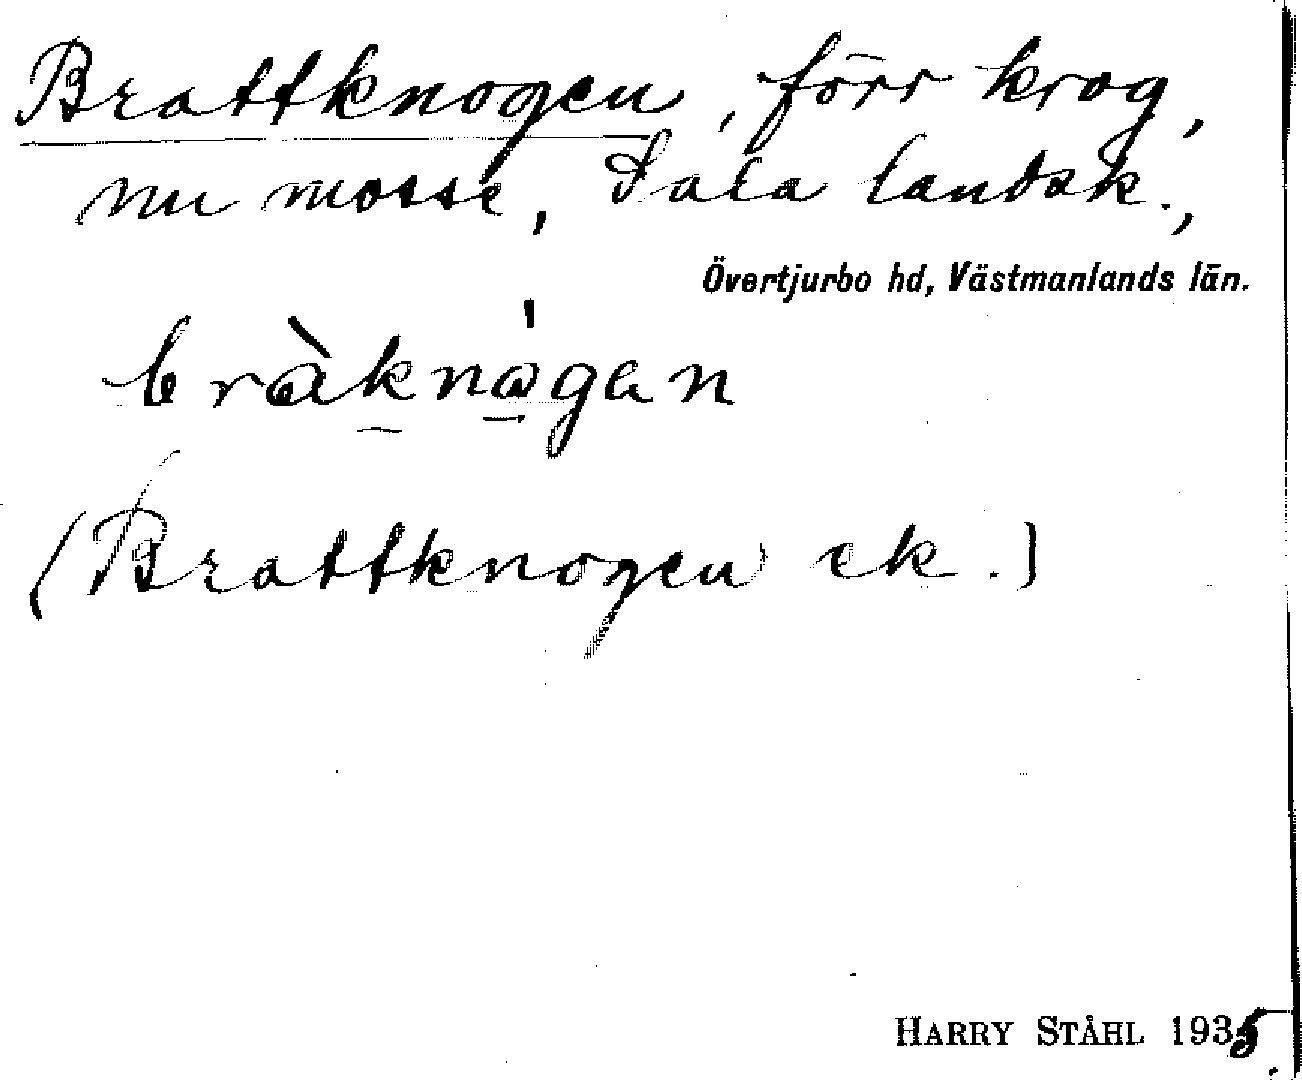 Brattknogen, förr krog,
nu mosse, Sala landsk.,
Övertjurbo hd, Västmanlands län.
bràknágan
(Brattknogen ek.)
HARRY STÅHL 1935